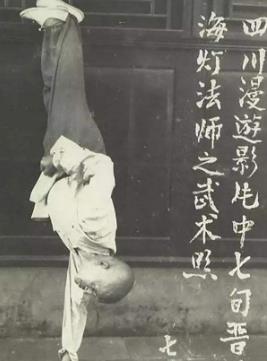 四川漫遊影片中七旬晋
海灯法师之武术照
七